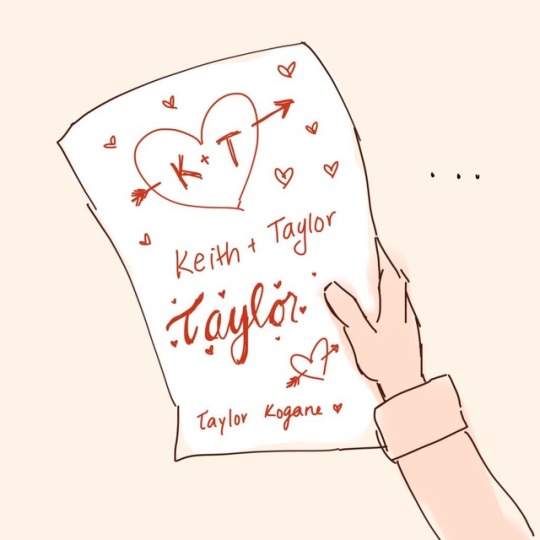 K + T
Keith + Taylor
Taylor
Taylor Kogane
...